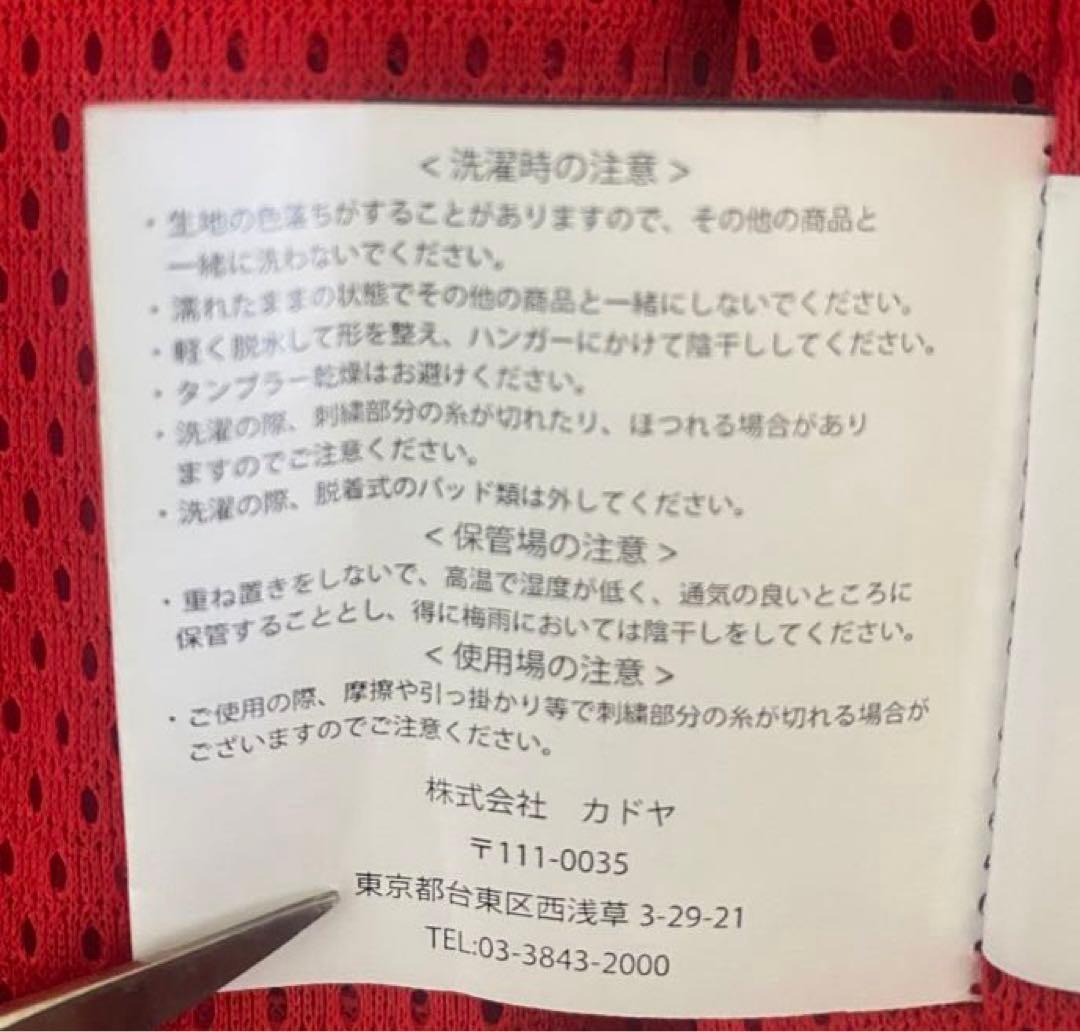 ＜洗濯時の注意＞
・生地の色落ちがすることがありますので、その他の商品と
一緒に洗わないでください。
・濡れたままの状態でその他の商品と一緒にしないでください。
・軽く脱水して形を整え、ハンガーにかけて陰干ししてください。
・タンブラー乾燥はお避けください。
・洗濯の際、刺繍部分の糸が切れたり、ほつれる場合があり
ますのでご注意ください。
・洗濯の際、脱着式のパッド類は外してください。
＜保管場の注意＞
・重ね置きをしないで、高温で湿度が低く、通気の良いところに
保管することとし、得に梅雨においては陰干しをしてください。
＜使用場の注意＞
・ご使用の際、摩擦や引っ掛かり等で刺繍部分の糸が切れる場合が
ございますのでご注意ください。
株式会社　カドヤ
〒111-0035
東京都台東区西浅草 3-29-21
TEL:03-3843-2000